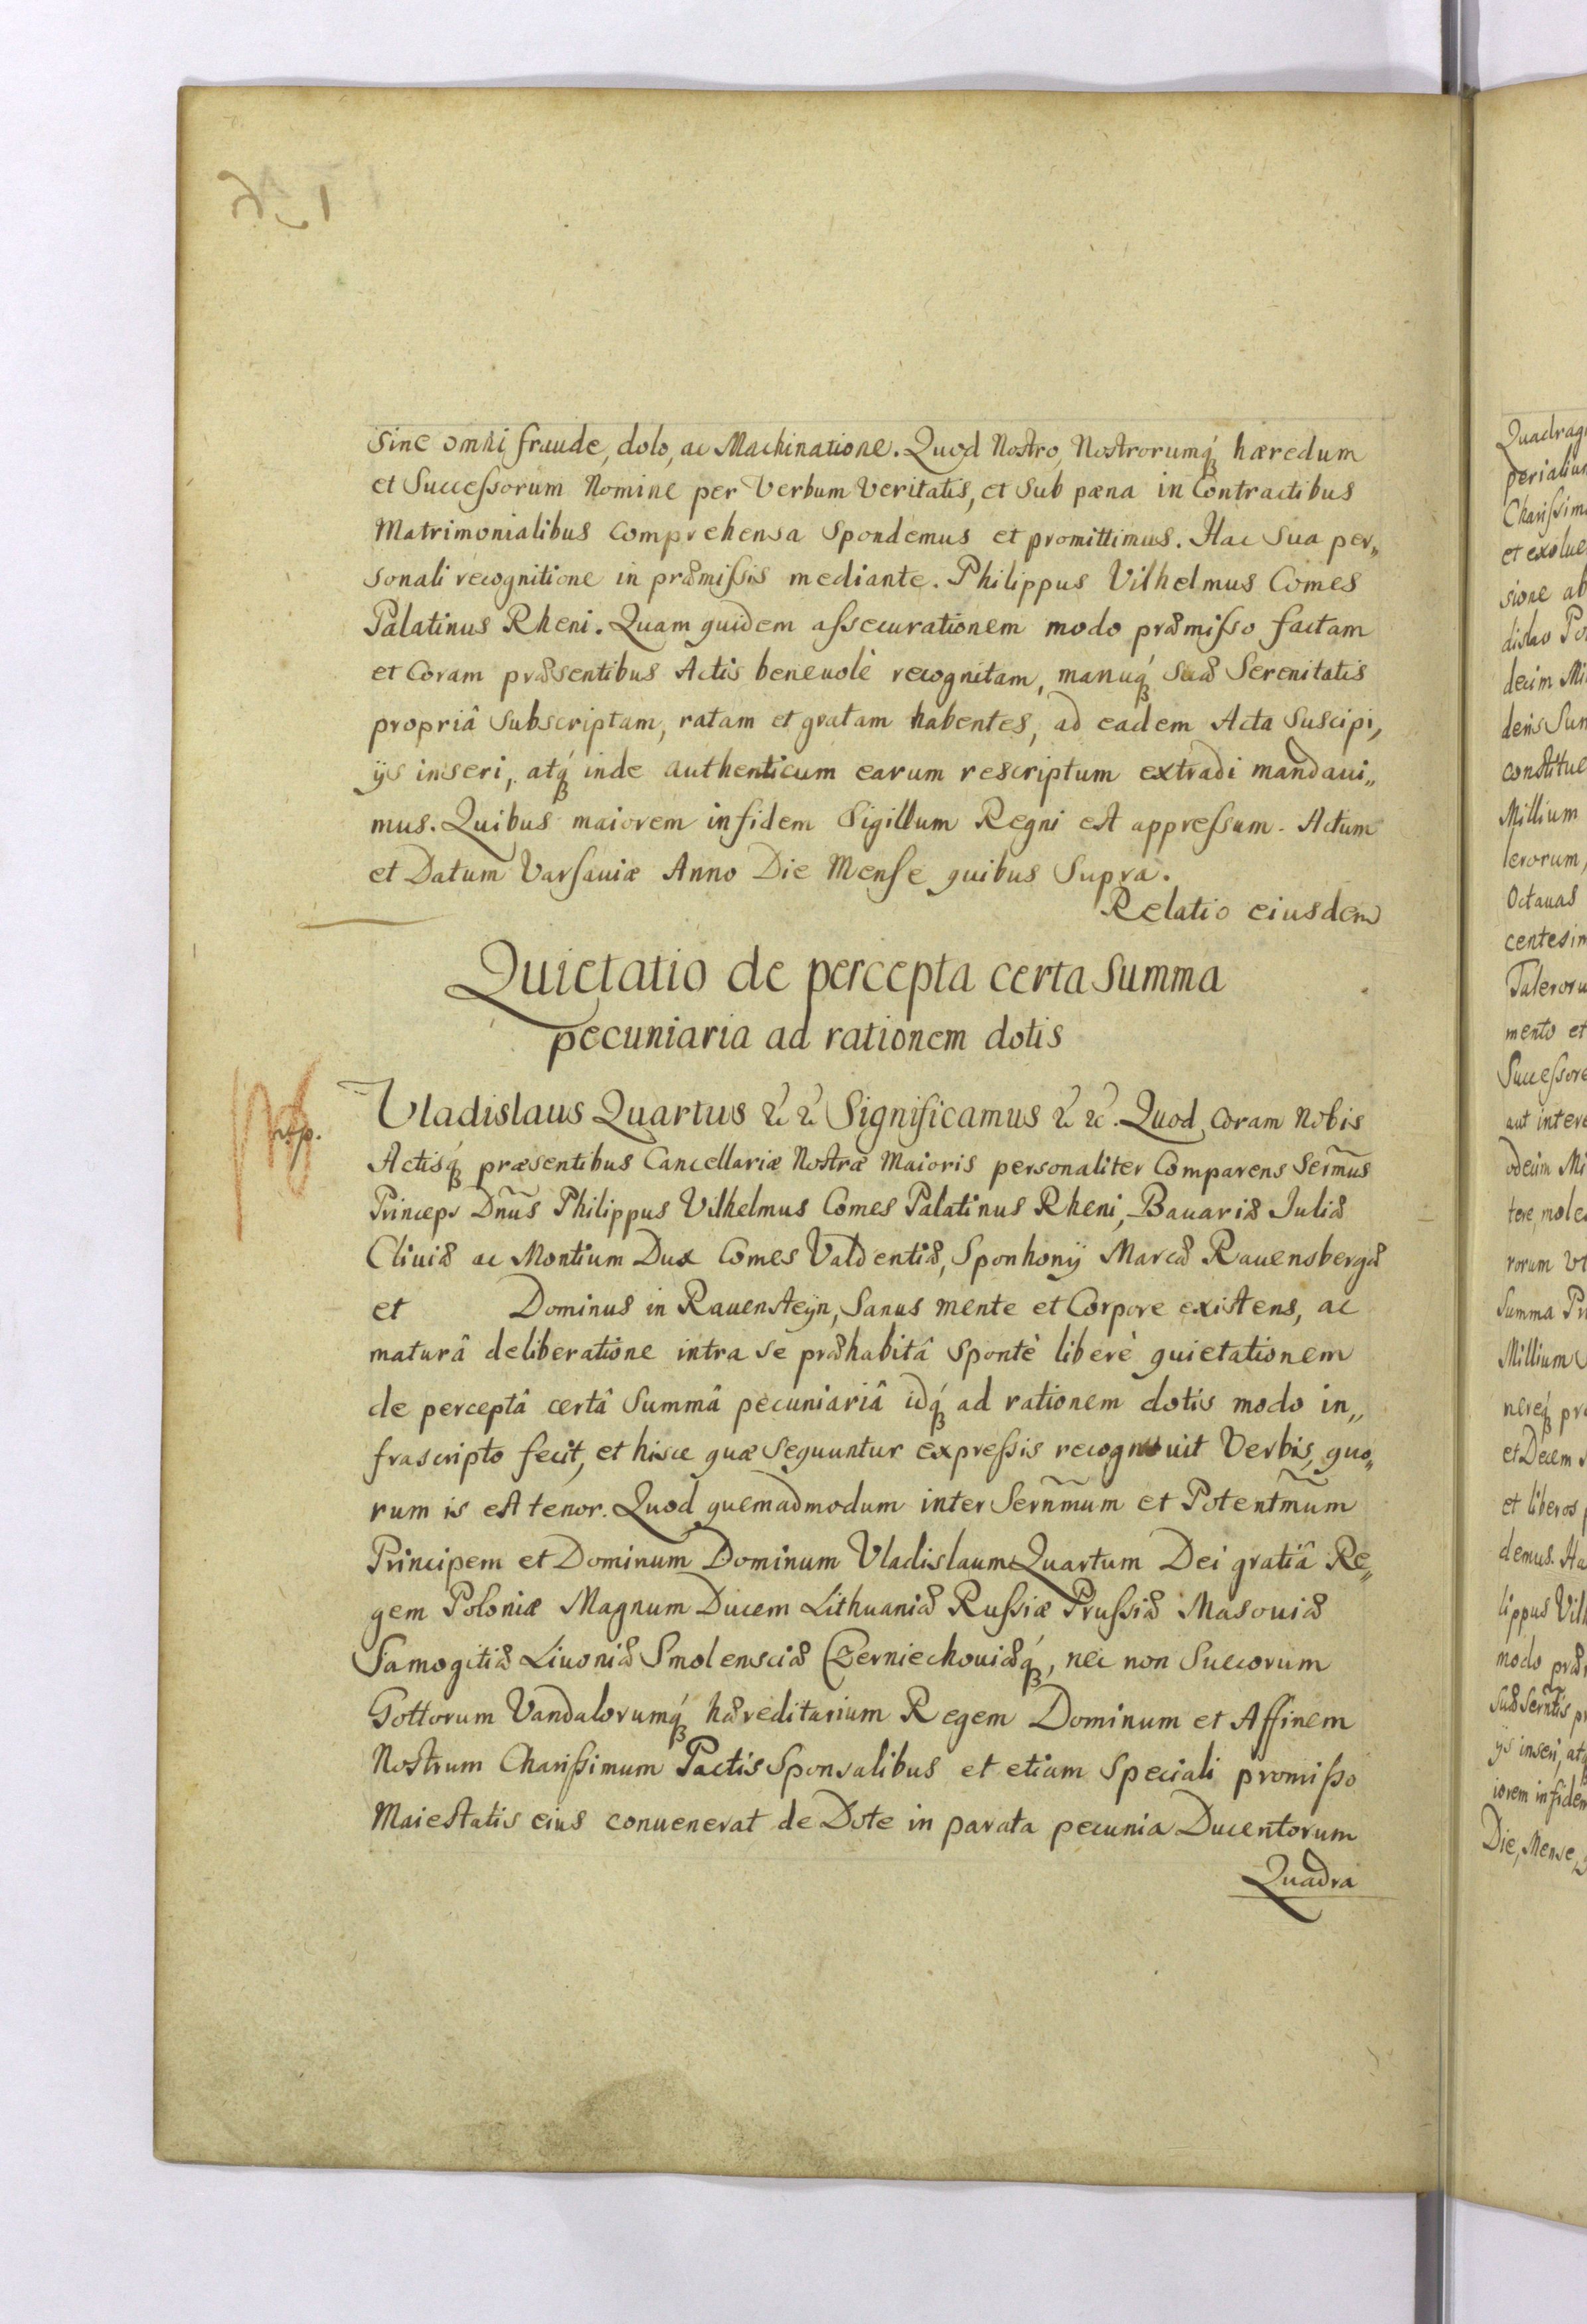 sine omni fraude, dolo, ac Machinatione. Quod Nostro, Nostrorumq́ꝫ hæredum
et Succeſsorum Nomine per Verbum Veritatis, et Sub pæna in Contractibus
Matrimonialibus comprehensa Spondemus et promittimus. Hac Sua per„
sonali recognitione in præmiſsis mediante. Philippus Vilhelmus Comes
Palatinus Rheni. Quam quidem aſsecurationem modo præmiſso factam
et Coram præsentibus Actis beneuolè recognitam, manuq́ꝫ Suæ Serenitatis
propriâ Subscriptam, ratam et gratam habentes, ad eadem Acta Suscipi,
ijs inseri, atq́ꝫ inde authenticum earum rescriptum extradi mandaui„
mus. Quibus maiorem in fidem Sigillum Regni est appreſsum. Actum
et Datum Varſauiæ Anno Die Menſe quibus Supra.
Relatio eiusdem
Quietatio de percepta certa Summa
pecuniaria ad rationem dotis
Vladislaus Quartus &c &c Significamus &c &c. Quod coram Nobis
Actisq́ꝫ præsentibus Cancellariæ Nostræ Maioris personaliter Comparens Serm̃us
Princeps Dñus Philippus Vilhelmus Comes Palatinus Rheni, Bauariæ Juliæ
Cliuiæ ac Montium Dux Comes Valdentiæ, Sponhonij Marcæ Rauensbergæ
et Dominus in Rauensteijn, Sanus mente et Corpore existens, ac
maturâ deliberatione intra se præhabitâ Spontè liberè quietationem
de perceptâ certâ Summâ pecuniariâ idq́ꝫ ad rationem dotis modo in„
frascripto fecit, et hisce quæ Sequuntur expreſsis recognouit Verbis, quo„
rum is est tenor. Quod quemadmodum inter Serñmum et Potentm̃um
Principem et Dominum Dominum Vladislaum Quartum Dei gratiâ Re„
gem Poloniæ Magnum Ducem Lithuaniæ Ruſsiæ Pruſsiæ Masouiæ
Samogitiæ Liuoniæ Smolensciæ Czerniechouiæq́ꝫ, nec non Suecorum
Gottorum Vandalorumq́ꝫ hæreditarium Regem Dominum et Affinem
Nostrum Chariſsimum Pactis Sponsalibus et etiam Speciali promiſso
Maiestatis eius conuenerat de Dote in parata pecunia Ducentorum
Quadra